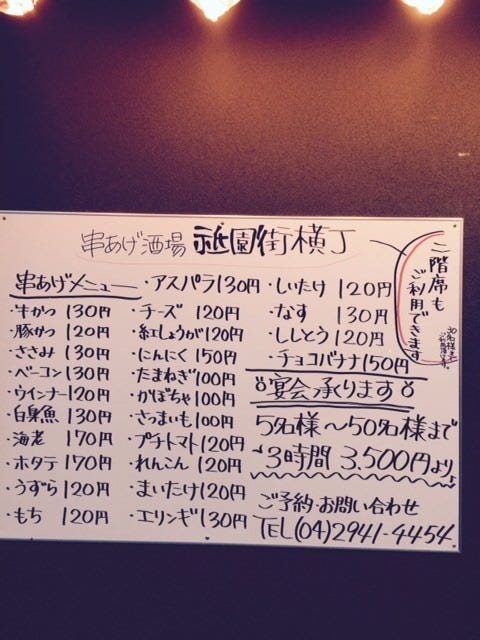 串あげ酒場 祇園街横丁
串あげメニュー
・牛かつ 130円
・豚かつ 120円
・ささみ 130円
・ベーコン 130円
・ウインナー 120円
・白身魚 130円
・海老 170円
・ホタテ 170円
・うずら 120円
・もち 120円
・アスパラ 130円
・チーズ 120円
・紅しょうが 120円
・にんにく 150円
・たまねぎ 100円
・かぼちゃ 100円
・さつまいも 100円
・プチトマト 120円
・れんこん 120円
・まいたけ 120円
・エリンギ 130円
・しいたけ 120円
・なす 130円
・ししとう 120円
・チョコバナナ 150円
宴会承ります
5名様〜50名様まで
3時間 3,500円より
ご予約・お問い合わせ
TEL(04)2941-4454
二階席も
ご利用できます